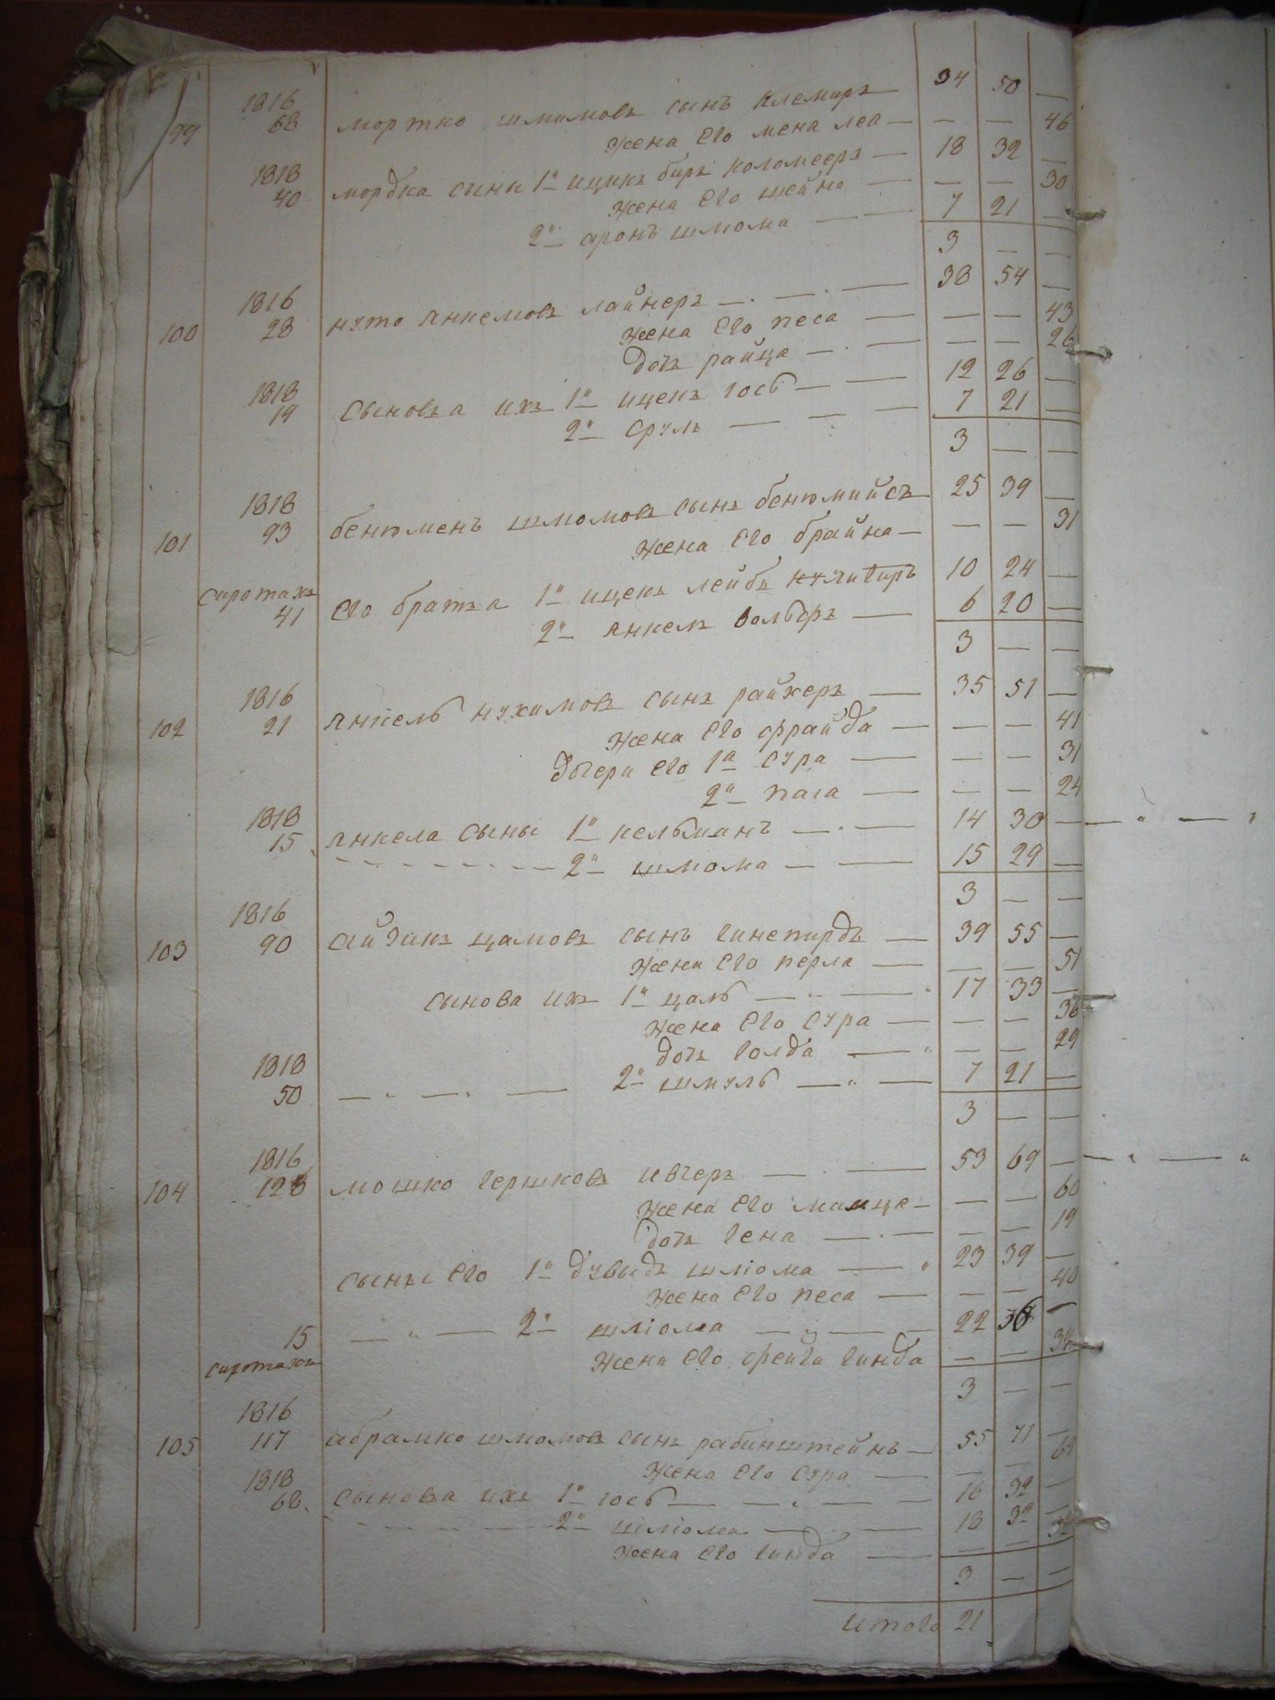 1816 34 50 —
99 68 мортко шмимовъ сынъ клемиръ
жена его мена леа — — — 46
1818 18 32 —
40 мордка сыны 1й ицикъ биръ коломееръ —
жена его шейна — — — 30
2й аронъ шмома — — 7 21 —
3 — —
1816 38 54 —
100 28 нуто янкемовъ лайнеръ — . — . —
жена его песа — — — 43
дочь райца — . — — — 26
1818 12 26 —
19 сыновьа ихъ 1й иценъ іосб — —
2й сруль — — — 7 21 —
3 — —
1818 25 39 —
101 93 бенюменъ шмомовъ сынъ бенюмийсъ
жена его брайна — — — 31
сиротахъ 10 24 —
41 его братьа 1й иценъ лейбъ
2й янкелъ вольфъ — 6 20 —
3 — —
1816
102 21 янкель нухимовъ сынъ райхеръ — 35 51 —
жена его фрайда — — — 41
дочери его 1а сура — — — 31
2а паса — — — 24
1818
15 янкела сыны 1й кельманъ — . — 14 30 —
2й шмома — — 15 29 —
3 — —
1816
103 90 айзикъ цамовъ сынъ гинспирдъ — 39 55 —
жена его перла — — — 51
сынова ихъ 1й цаль — — 17 33 —
жена его сура — — — 36
дочь голда — — — 29
1818
50 — — — 2й шмуль — — 7 21 —
3 — —
1816
104 128 мошко гершковъ ивчеръ — . — 53 69 —
жена его маица — — — 60
дочь гена — . — — — 19
сыны его 1й дувыдъ шліома — 23 39 —
жена его песа — — — 40
15 — — 2й шліома — — 22 38 —
сиротахъ жена его фейга гинда — — 34
3 — —
1816
105 117 абрамко шмомовъ сынъ рабинштейнъ — 55 71 —
жена его сура — — — 61
1818
68 сынова ихъ 1й іосб — — . — — 16 32 —
2й шліома — — 18 32 —
жена его гинда — — —
3 — —
итого 21